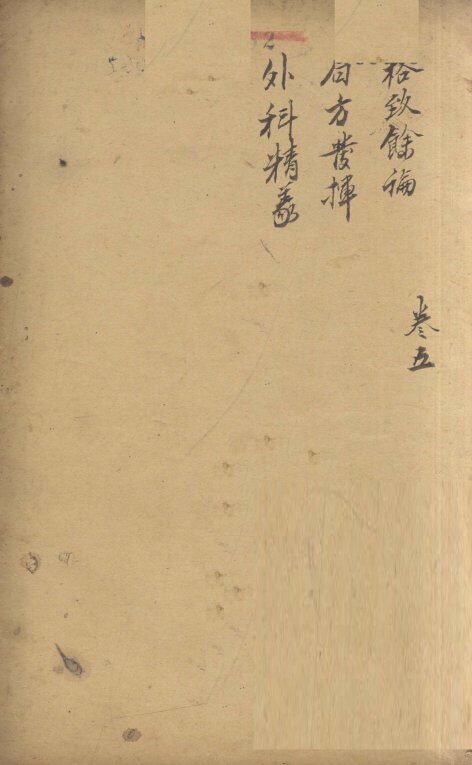 格致餘論
局方發揮
外科精義
卷五